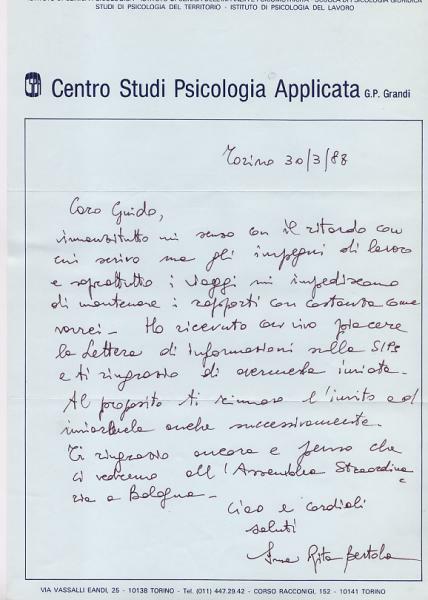 STUDI DI PSICOLOGIA DEL TERRITORIO - ISTITUTO DI PSICOLOGIA DEL LAVORO
Centro Studi Psicologia Applicata G.P. Grandi
Torino 30/3/88
Caro Guido,
innanzitutto mi scuso con il ritardo con
cui scrivo ma gli impegni di lavoro
e soprattutto i viaggi mi impediscono
di mantenere i rapporti con costanza come
vorrei - Ho ricevuto con vivo piacere
la Lettera di informazioni sulla SIPs
e ti ringrazio di avermela inviata.
Al proposito ti rinnovo l'invito ad
inviarmela anche successivamente.
Ti ringrazio ancora e penso che
ci vedremo all'Assemblea Straordina
ria a Bologna -
Ciao e cordiali
saluti
Rita Bertola
VIA VASSALLI EANDI, 25 - 10138 TORINO - Tel. (011) 447.29.42 - CORSO RACCONIGI, 152 - 10141 TORINO